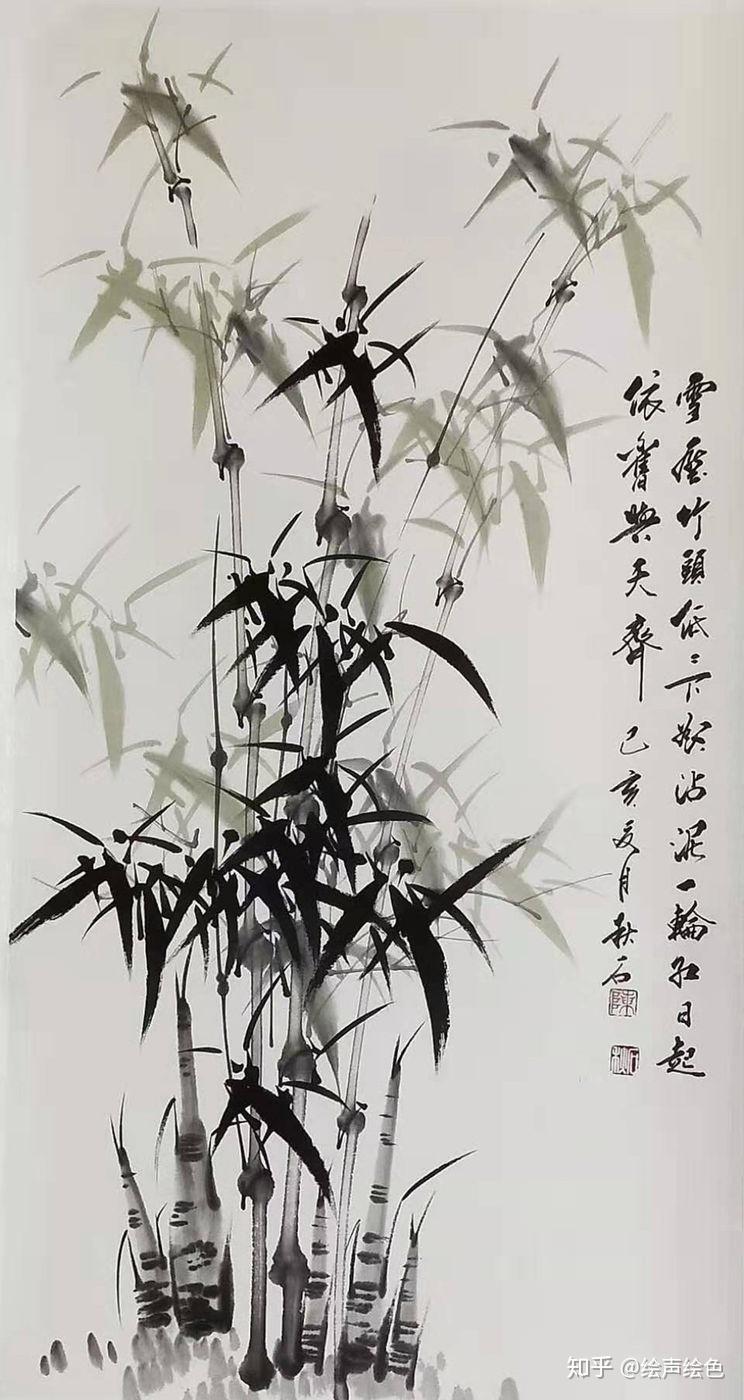 雪壓竹頭低〻下欲沾泥一輪紅日起
依舊與天齊 己亥夏月秋石
陳
知乎 @绘声绘色